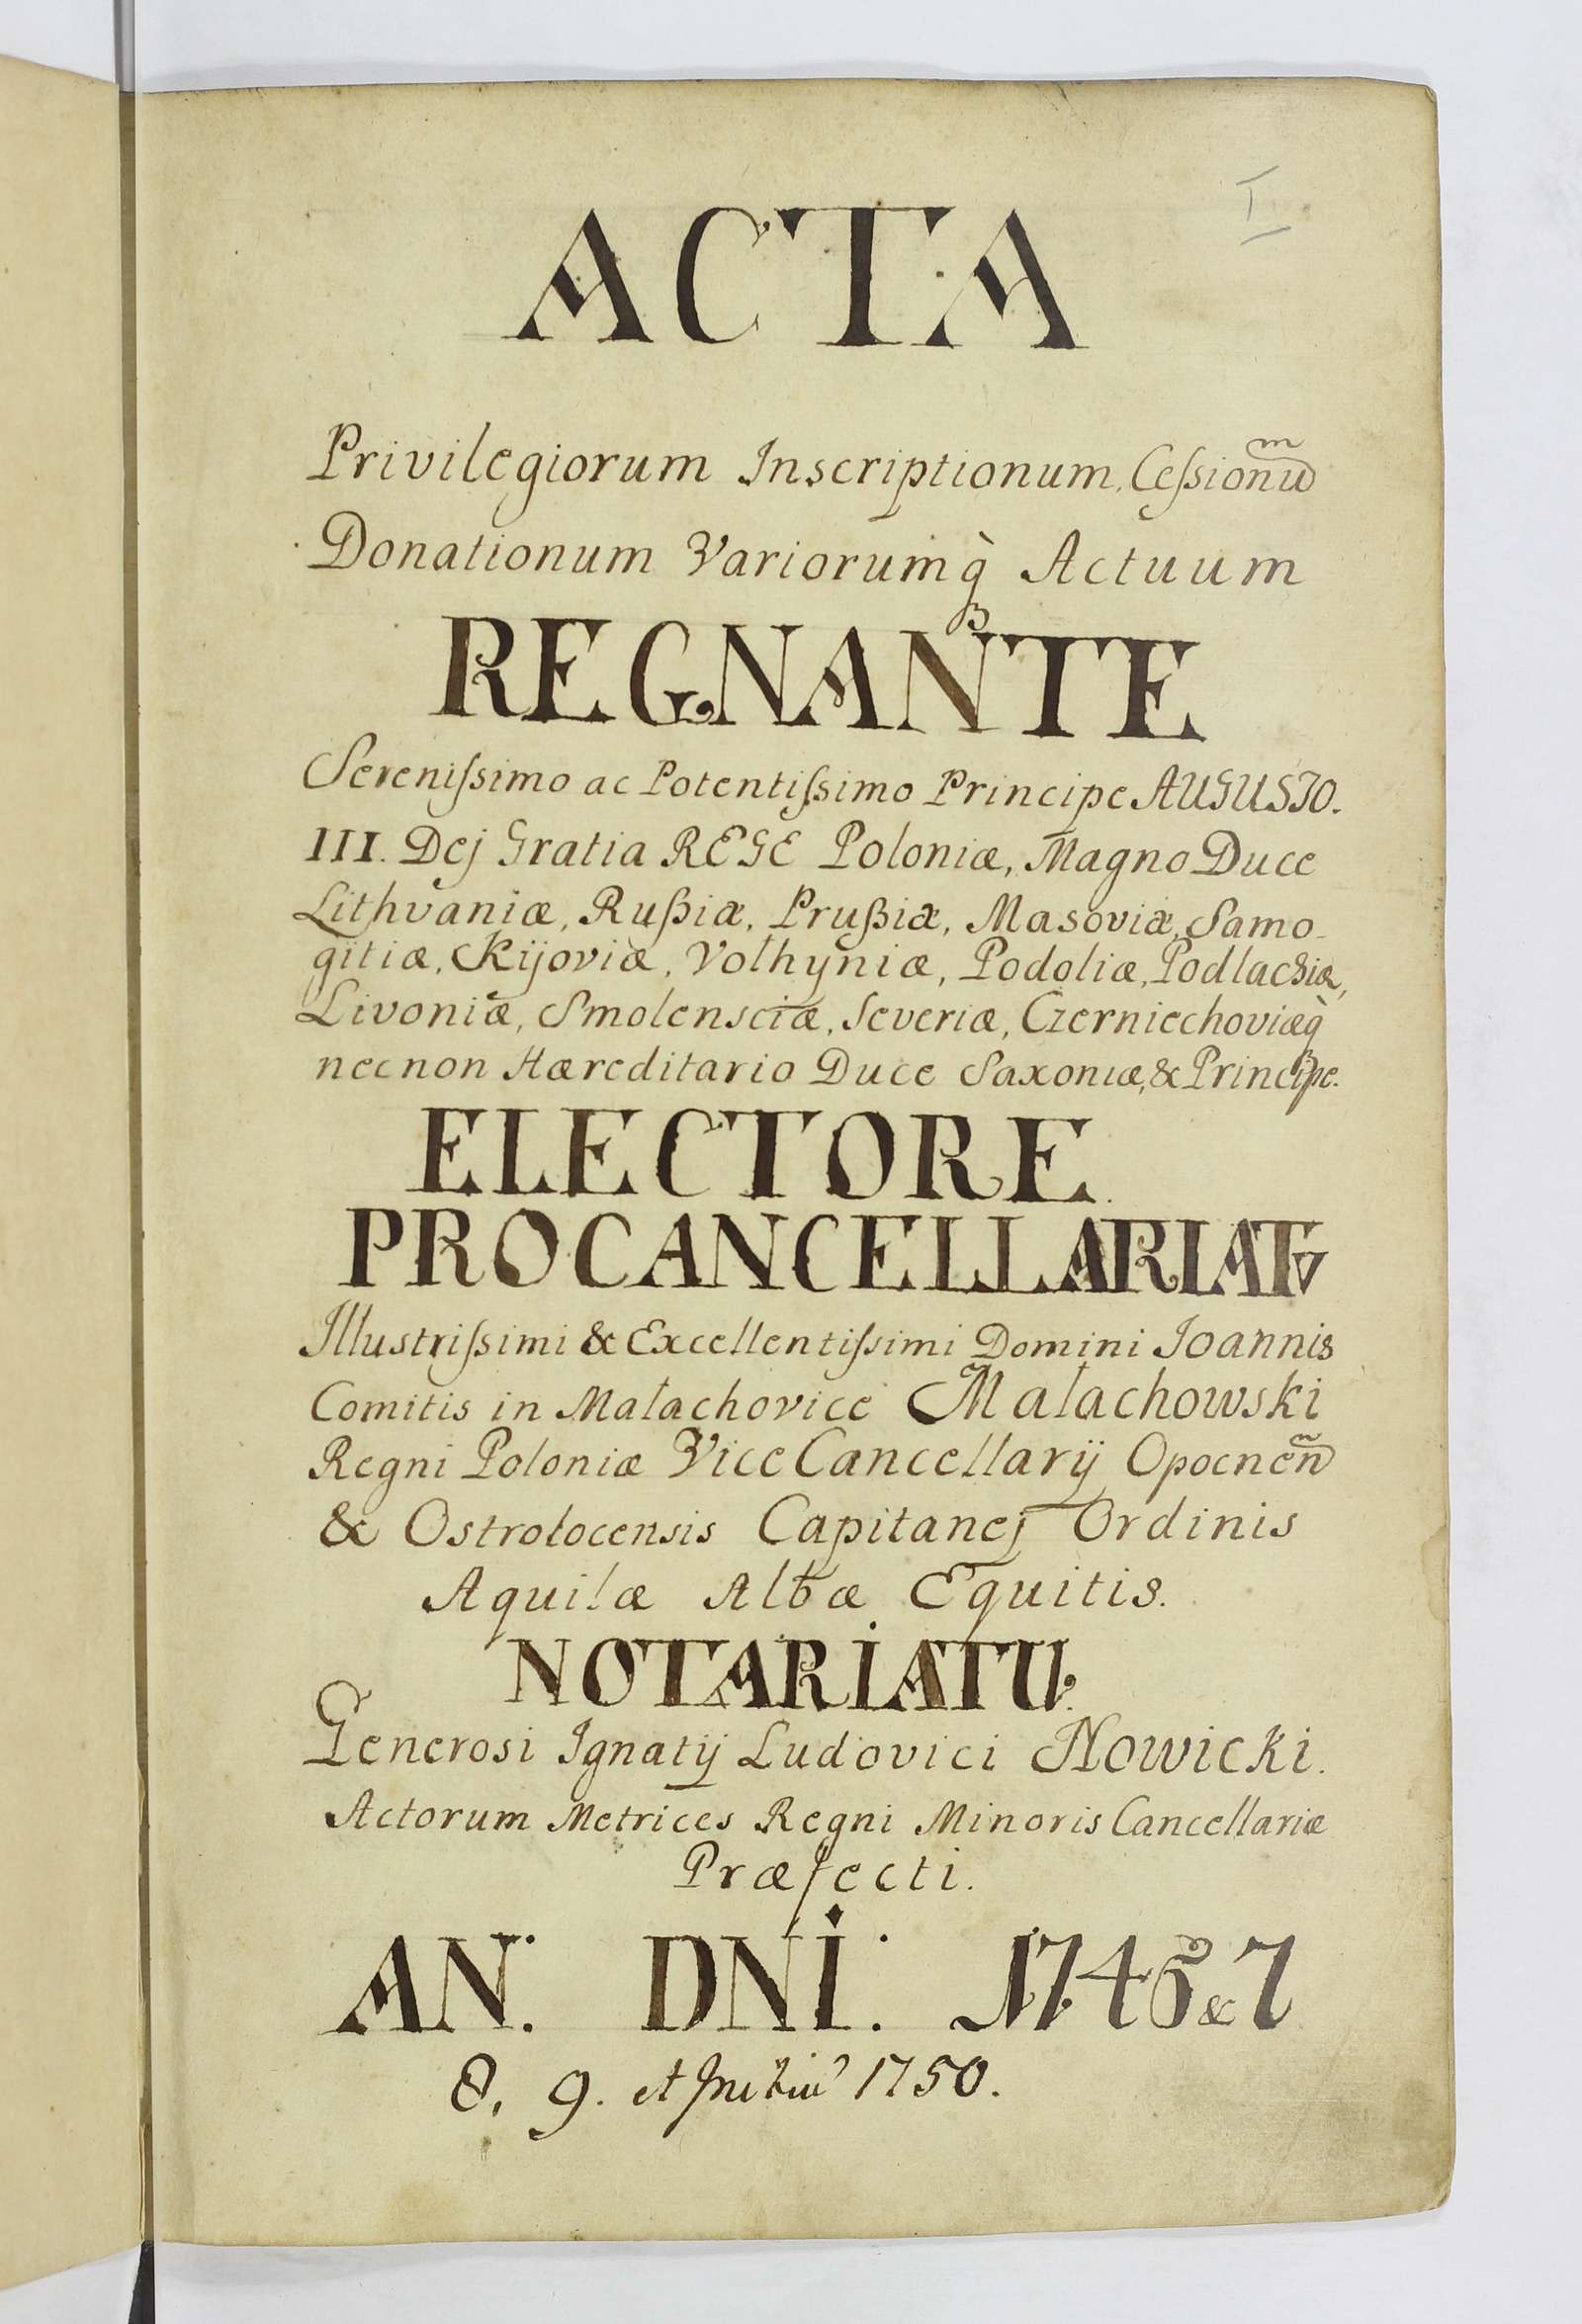 I
ACTA
Privilegiorum Inscriptionum, Cessionũm
Donationum Variorumq̀ꝫ Actuum
REGNANTE
Serenissimo ac Potentissimo Principe AUGUSTO.
III. Dej Gratia REGE Poloniæ, Magno Duce
Lithvaniæ, Rußiæ, Prußiæ, Masoviæ, Samo-
gitiæ, Kijoviæ, Volhyniæ, Podoliæ, Podlachiæ,
Livoniæ, Smolensciæ, Severiæ, Czerniechoviæq̀ꝫ
necnon Hæreditario Duce Saxoniæ, & Principe.
ELECTORE
PROCANCELLARIATU
Illustrissimi & Excellentissimi Domini Joannis
Comitis in Małachovice Małachowski
Regni Poloniæ ViceCancellarij Opocnen̄
& Ostrołocensis Capitanej Ordinis
Aquilæ Albæ Equitis.
NOTARIATU.
Generosi Ignatij Ludovici Nowicki.
Actorum Metrices Regni Minoris Cancellariæ
Præfecti.
AN. DNI. 1746 & 7
8, 9. et 1750.